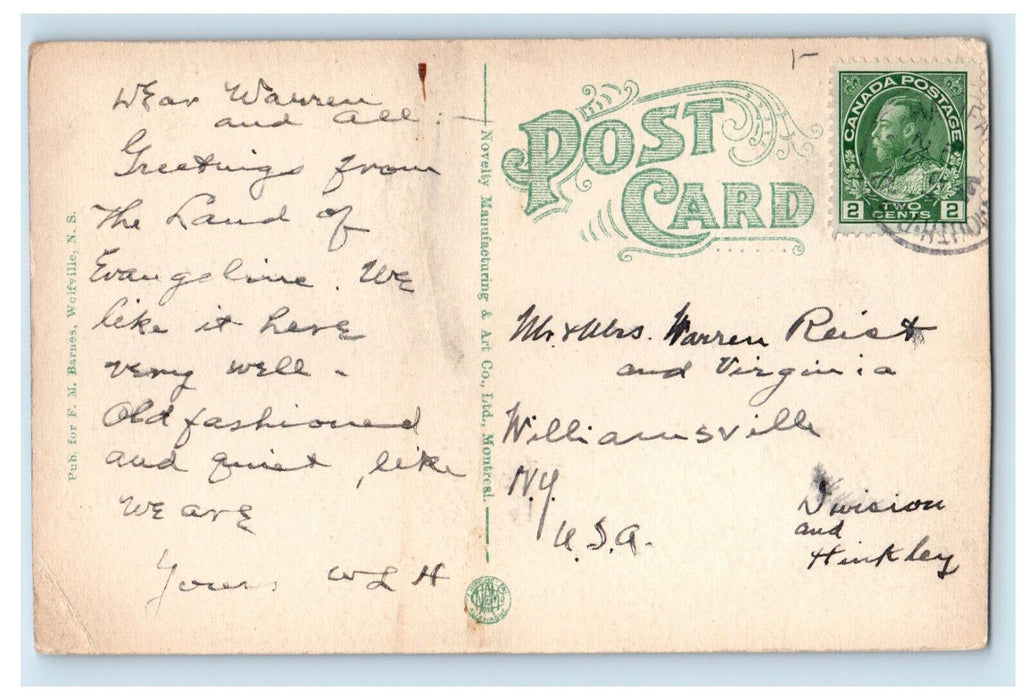 Dear Warren
and all :-
Greetings from
the Land of
Evangeline. We
like it here
very well -
Old fashioned
and quiet, like
we are
Yours WLH
Pub. for F. M. Barnes, Wolfville, N. S.
Novelty Manufacturing & Art Co., Ltd., Montreal.
POST
CARD
CANADA POSTAGE
2 TWO CENTS 2
Mr. & Mrs. Warren Reist
and Virginia
Williamsville
N.Y.
U.S.A.
Division
and
Hinkley